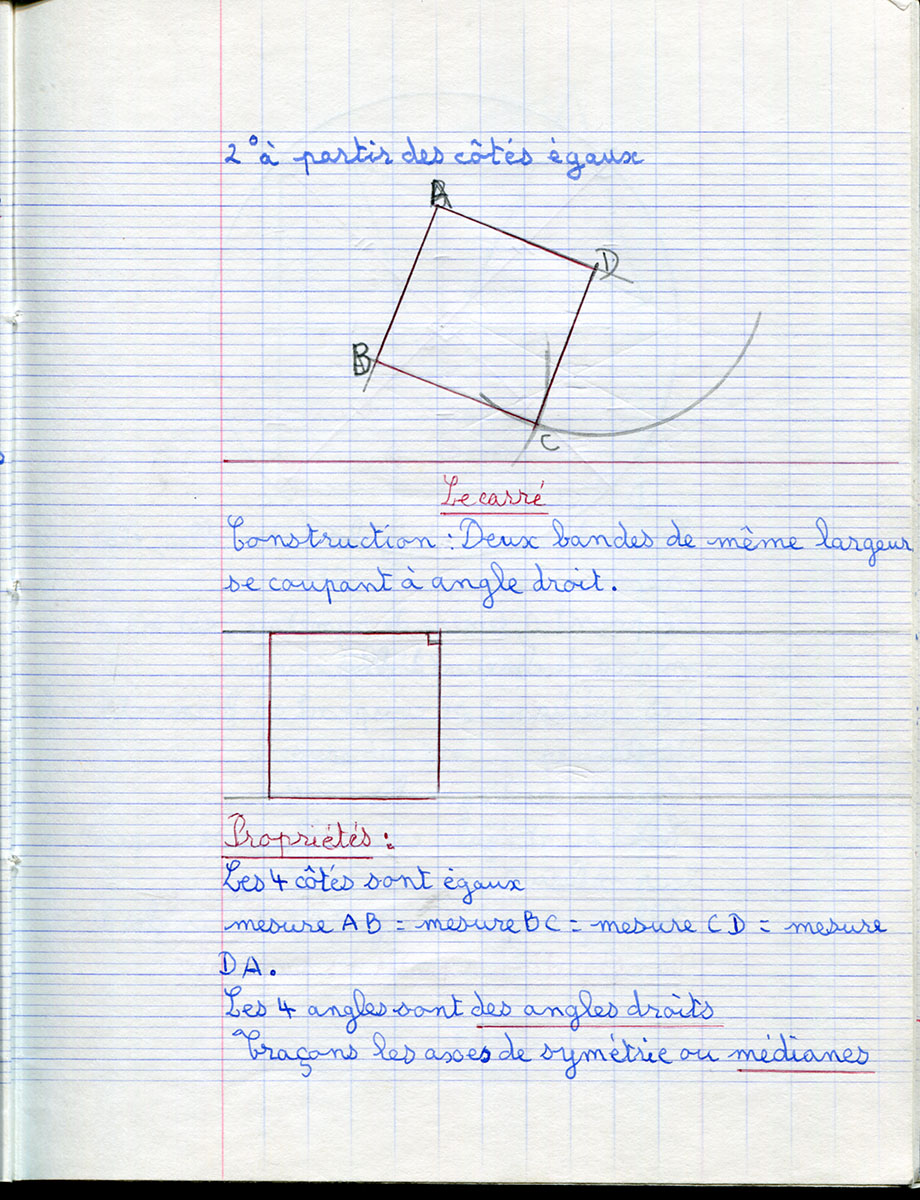 2° à partir des côtés égaux
A
D
B
C
Le carré
Construction : Deux bandes de même largeur
se coupant à angle droit.
Propriétés :
Les 4 côtés sont égaux
mesure AB = mesure BC = mesure CD = mesure
DA.
Les 4 angles sont des angles droits
Traçons les axes de symétrie ou médianes